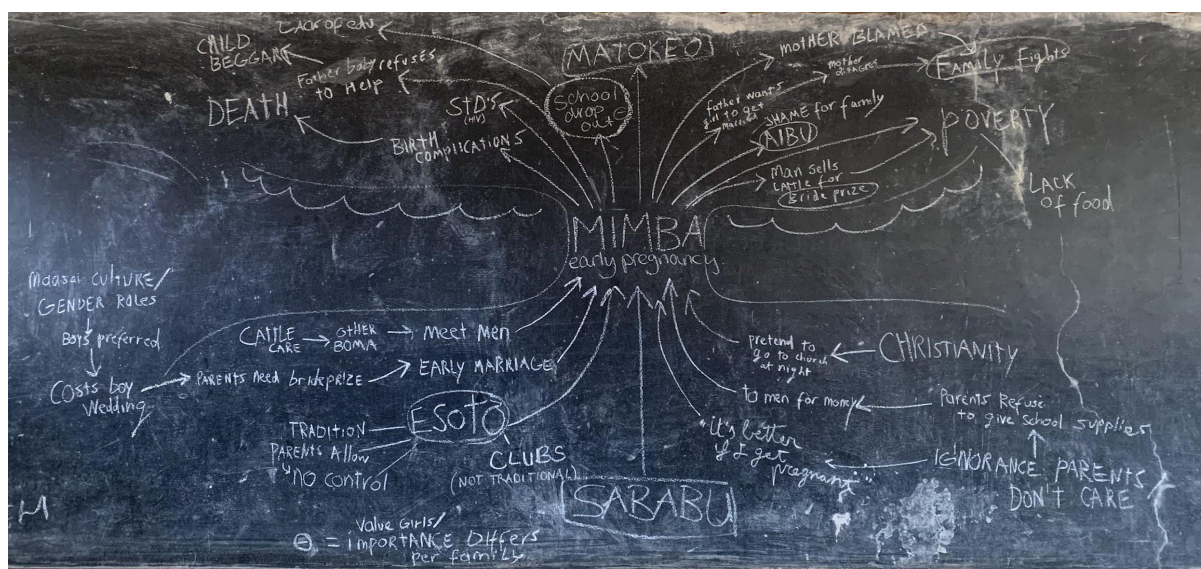 Lack of edu
CHILD
BEGGAR
Father baby refuses
to Help
DEATH
STD'S
(HIV)
BIRTH
COMPLICATIONS
School
drop
out
MATOKEO
MOTHER BLAMED
mother
disagrees
Family Fights
Father wants
girl to get
married
SHAME for family
AIBU
POVERTY
Man sells
CATTLE for
Bride prize
LACK
of food
MIMBA
early pregnancy
Maasai CULTURE/
GENDER ROLES
Boys preferred
Costs boy
Wedding
CATTLE
CARE
OTHER
BOMA
Meet Men
PARENTS Need brideprize
EARLY MARRIAGE
ESOTO
TRADITION
PARENTS Allow
NO control
CLUBS
(NOT TRADITIONAL)
pretend to
go to church
at night
CHRISTIANITY
to men for money
Parents Refuse
to give school supplies
"It's better
if I get
pregnant"
IGNORANCE PARENTS
DON'T CARE
SABABU
Value Girls/
= IMPORTANCE Differs
per family